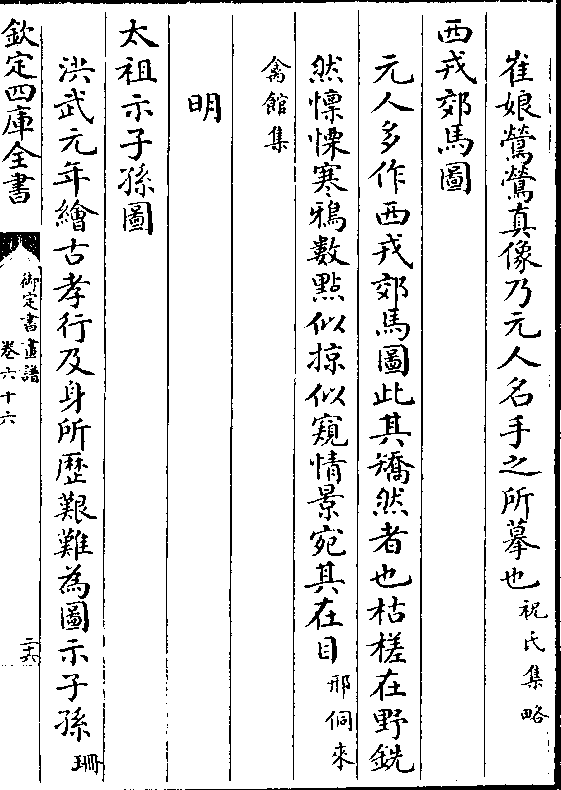 崔娘鶯鶯真像乃元人名手之所摹也祝氏集略
西戎郊馬圖
元人多作西戎郊馬圖此其矯然者也枯槎在野銑
然懍慄寒鴉數點似掠似窺情景宛其在目邢侗来
禽館集
明
太祖示子孫圖
洪武元年繪古孝行及身所歴艱難為圖示子孫珊
欽定四庫全書
御定書畫譜
卷六十六
二六